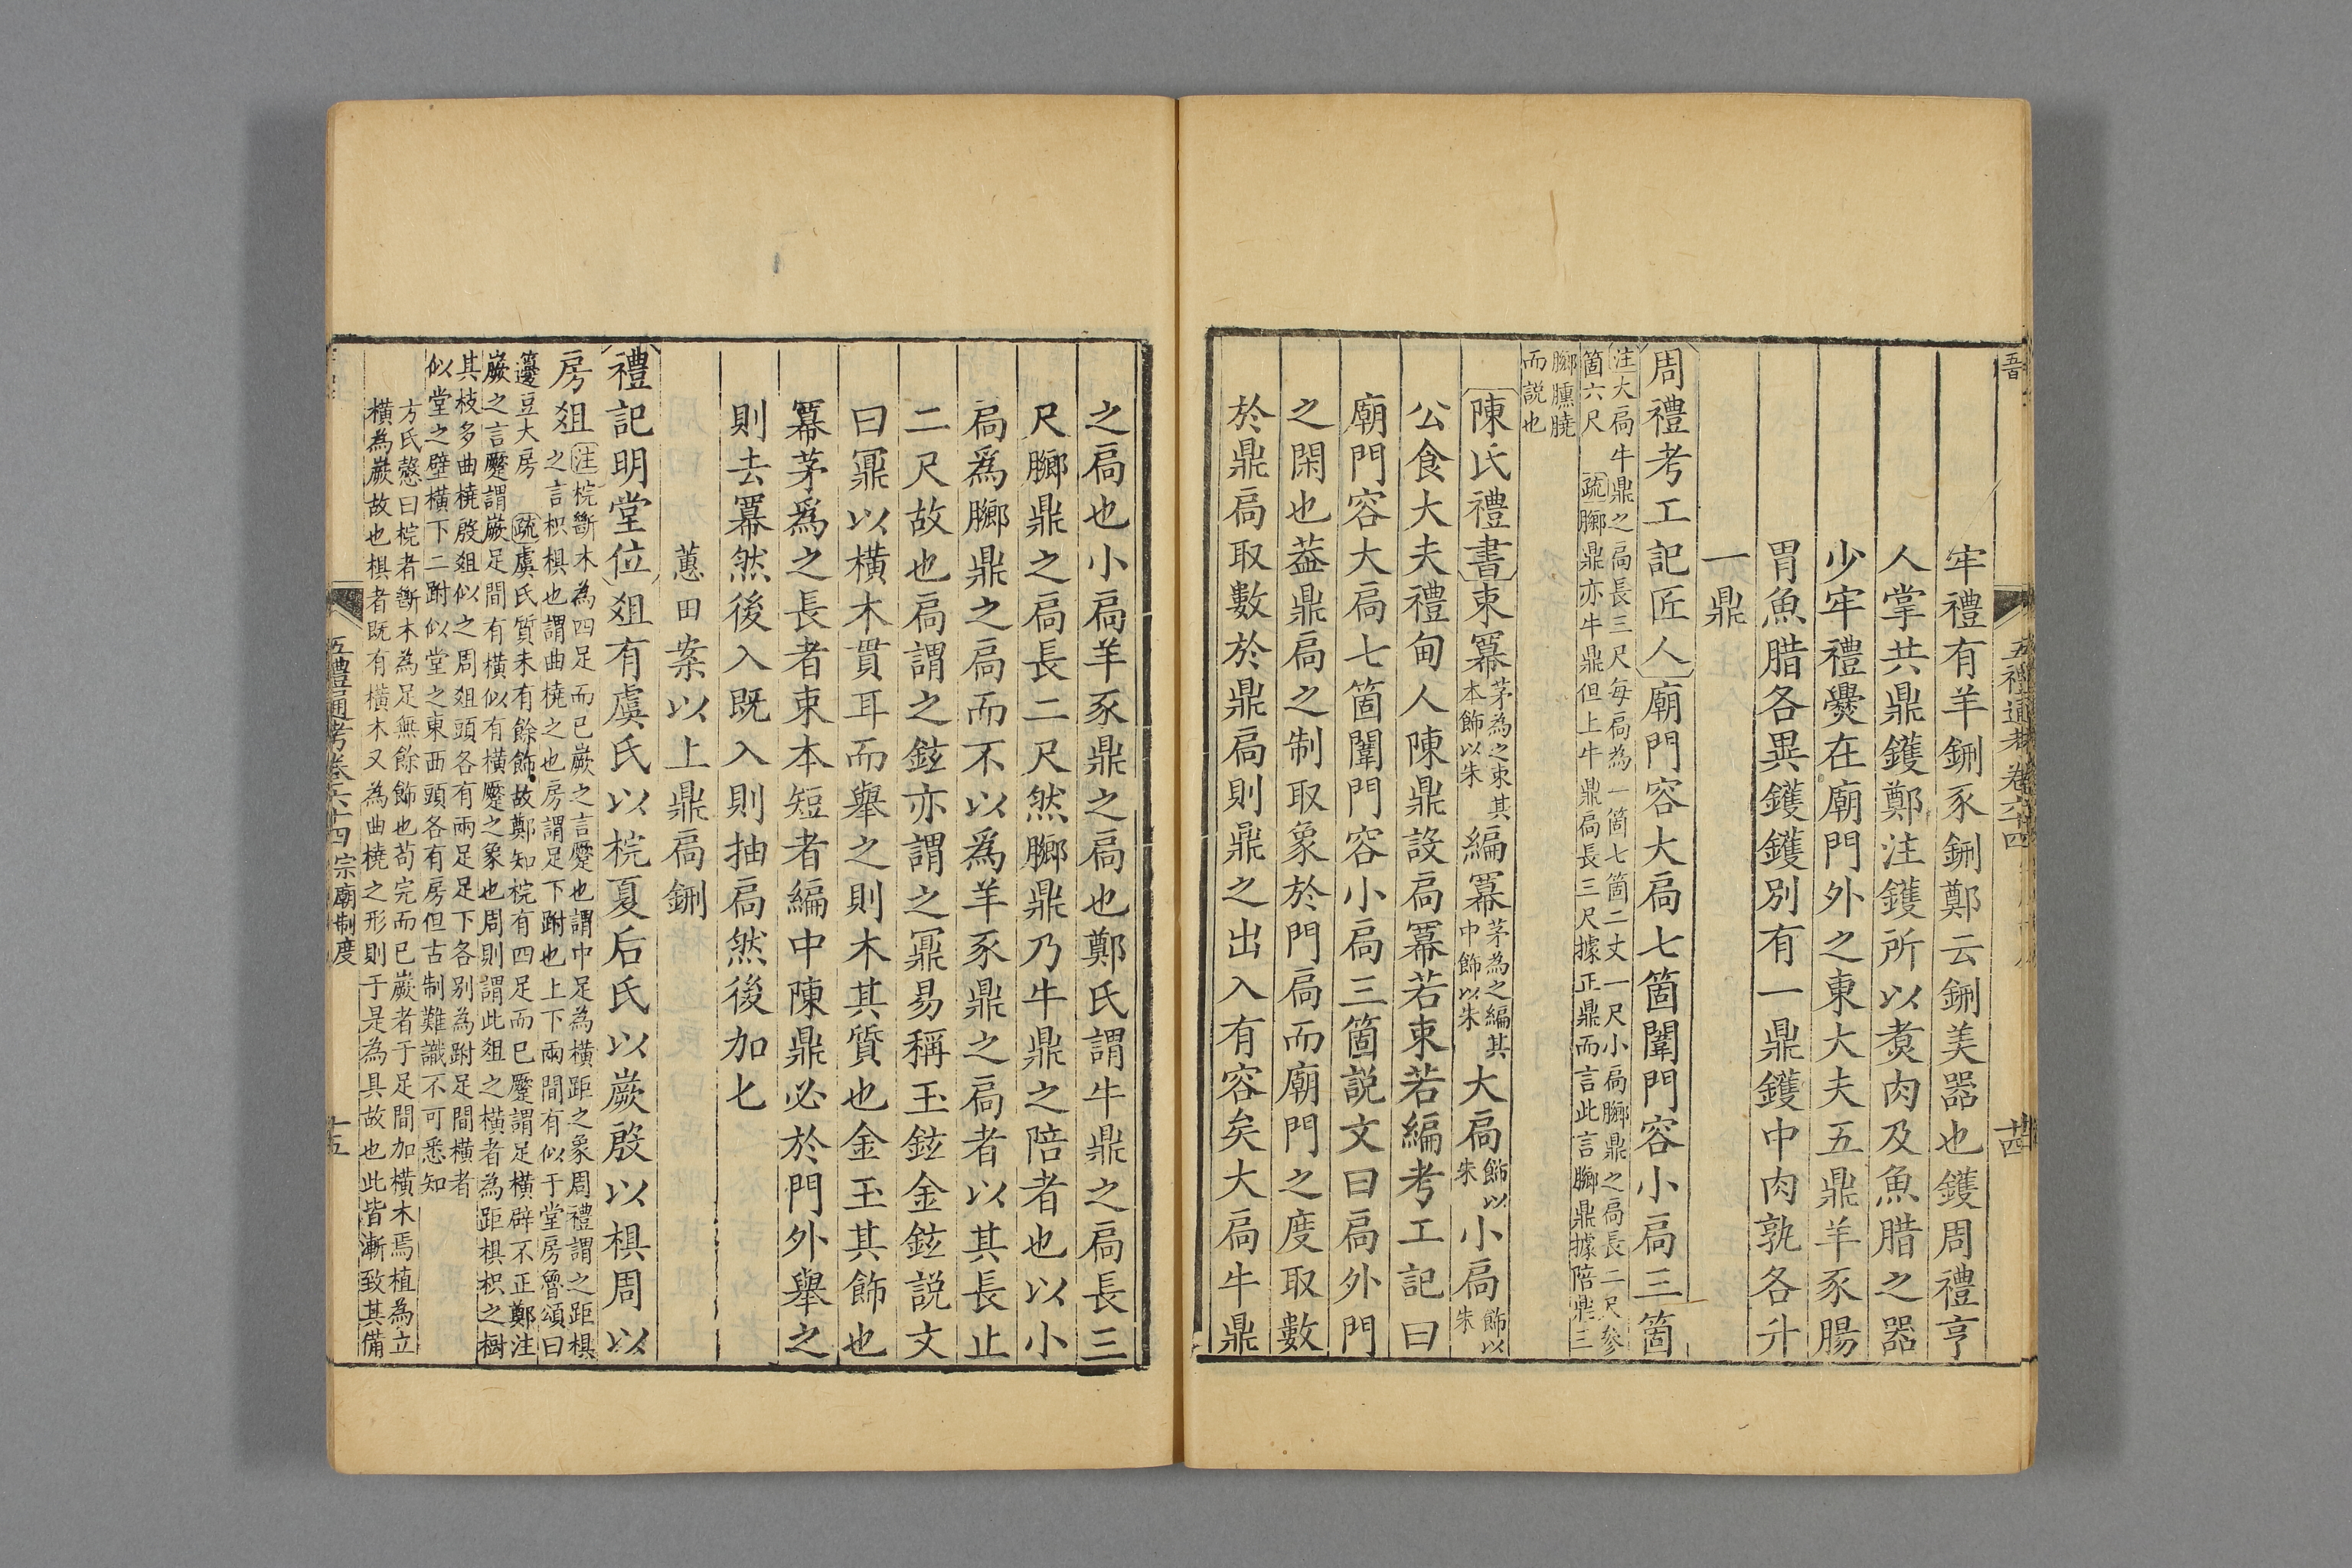 五禮通考卷六十四
十四
牢禮有羊鉶豕鉶鄭云鉶羙器也鑊周禮亨
人掌共鼎鑊鄭注鑊所以煑肉及魚腊之器
少牢禮㸑在廟門外之東大夫五鼎羊豕腸
胃魚腊各異鑊鑊別有一鼎鑊中肉孰各升
一鼎
周禮考工記匠人廟門容大扃七箇闈門容小扃三箇
注大扃牛鼎之扃長三尺每扃為一箇七箇二丈一尺小扃膷鼎之扃長二尺參
箇六尺 疏膷鼎亦牛鼎但上牛鼎扃長三尺據正鼎而言此言膷鼎據陪鼎三
膷臐膮
而說也
陳氏禮書束冪茅為之束其
本飾以朱編冪茅為之編其
中飾以朱大扃飾以
朱小扃飾以
朱
公食大夫禮甸人陳鼎設扃冪若束若編考工記曰
廟門容大扃七箇闈門容小扃三箇說文曰扃外門
之閑也葢鼎扃之制取象於門扃而廟門之度取數
於鼎扃取數於鼎扃則鼎之出入有容矣大扃牛鼎
之扃也小扃羊豕鼎之扃也鄭氏謂牛鼎之扃長三
尺膷鼎之扃長二尺然膷鼎乃牛鼎之陪者也以小
扃爲膷鼎之扃而不以爲羊豕鼎之扃者以其長止
二尺故也扃謂之鉉亦謂之鼏易稱玉鉉金鉉說文
曰鼏以橫木貫耳而舉之則木其質也金玉其飾也
冪茅爲之長者束本短者編中陳鼎必於門外舉之
則去冪然後入既入則抽扃然後加匕
蕙田案以上鼎扃鉶
禮記明堂位俎有虞氏以梡夏后氏以嶡殷以椇周以
房俎注梡斷木為四足而已嶡之言蹷也謂中足為橫距之象周禮謂之距椇
之言枳椇也謂曲橈之也房謂足下跗也上下兩間有似于堂房魯頌曰
籩豆大房 疏虞氏質未有餘飾故鄭知梡有四足而已蹷謂足橫辟不正鄭注
嶡之言蹷謂嶡足間有橫似有橫蹷之象也周則謂此俎之橫者為距椇枳之樹
其枝多曲橈殷俎似之周俎頭各有兩足足下各別為跗足間橫者
似堂之壁橫下二跗似堂之東西頭各有房但古制難識不可悉知
方氏慤曰梡者斷木為足無餘飾也苟完而已嶡者于足間加橫木焉植為立
橫為嶡故也椇者既有橫木又為曲橈之形則于是為具故也此皆漸致其備
五禮通考卷六十四 宗廟制度
十五